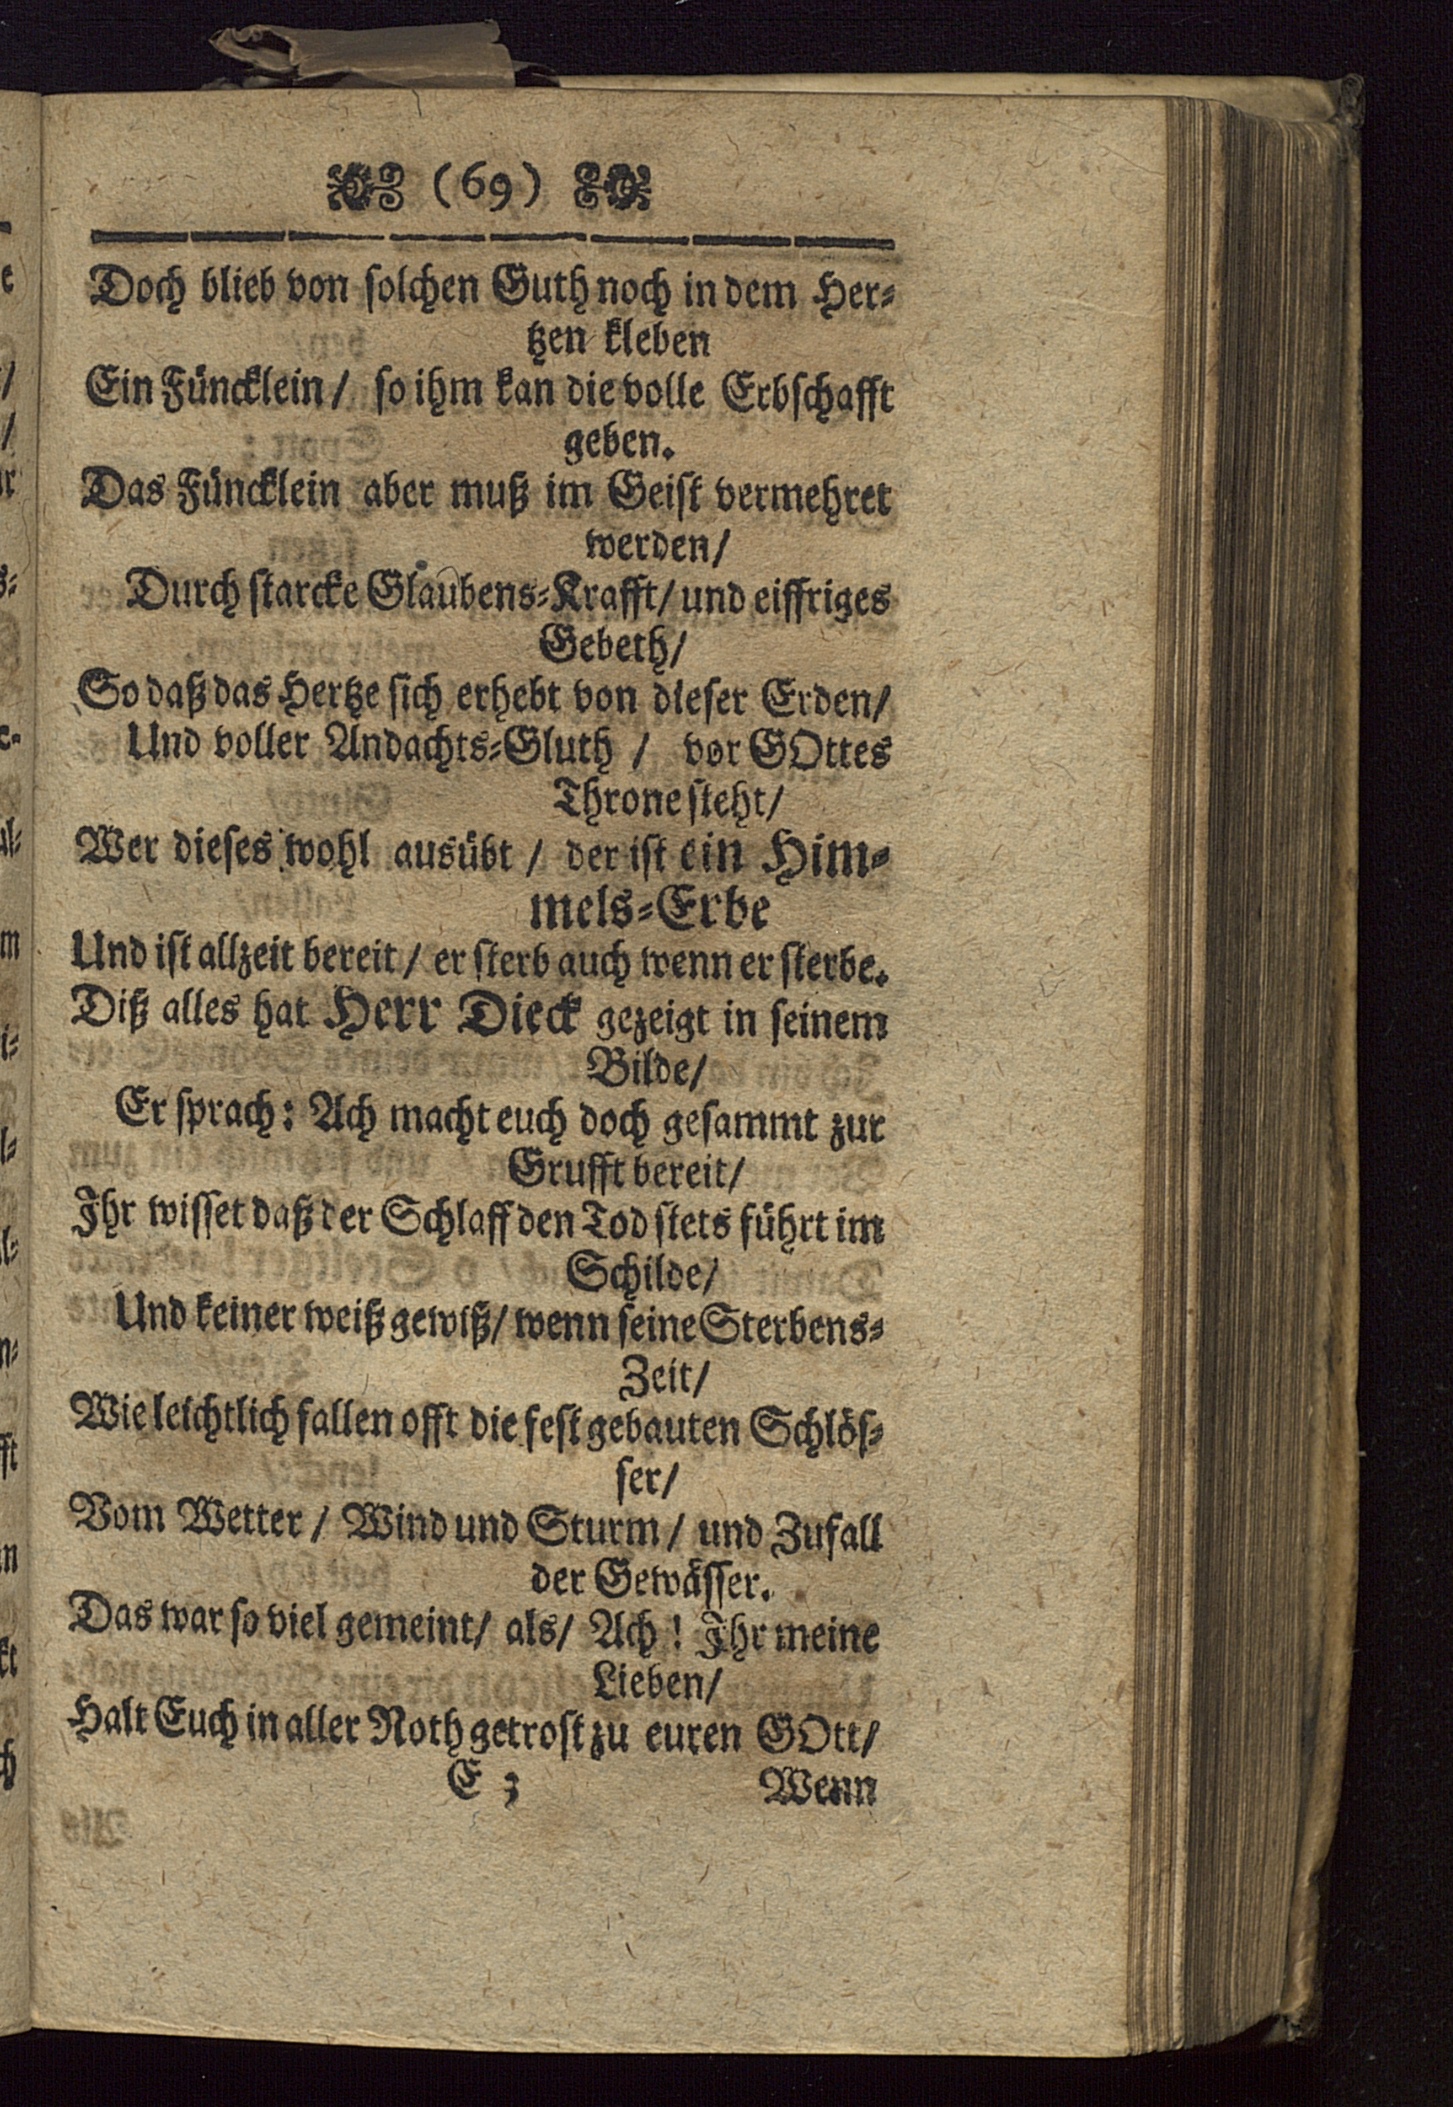 (69)
Doch blieb von solchen Guth noch in dem Her-
tzen kleben
Ein Füncklein/ so ihm kan die volle Erbschafft
geben.
Das Füncklein aber muß im Geist vermehret
werden/
Durch starcke Glaubens-Krafft/ und eiffriges
Gebeth/
So daß das Hertze sich erhebt von dieser Erden/
Und voller Andachts-Gluth / vor GOttes
Throne steht/
Wer dieses wohl ausübt / der ist ein Him-
mels-Erbe
Und ist allzeit bereit/ er sterb auch wenn er sterbe.
Diß alles hat Herr Dieck gezeigt in seinem
Bilde/
Er sprach: Ach macht euch doch gesammt zur
Grufft bereit/
Ihr wisset daß der Schlaff den Tod stets führt im
Schilde/
Und keiner weiß gewiß/ wenn seine Sterbens-
Zeit/
Wie leichtlich fallen offt die fest gebauten Schlös-
ser/
Vom Wetter / Wind und Sturm / und Zufall
der Gewässer.
Das war so viel gemeint/ als/ Ach ! Ihr meine
Lieben/
Halt Euch in aller Noth getrost zu euren GOtt/
E 3 Wenn